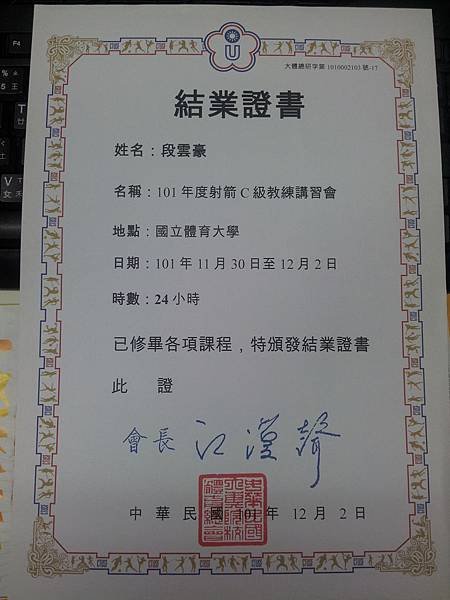 U
大體總研字第 1010002103 號-17
結業證書
姓名：段雲豪
名稱：101 年度射箭 C 級教練講習會
地點：國立體育大學
日期：101 年 11 月 30 日至 12 月 2 日
時數：24 小時
已修畢各項課程，特頒發結業證書
此 證
會長 江漢聲
中 華 民 國 101 年 12 月 2 日
中華民國大專院校體育總會